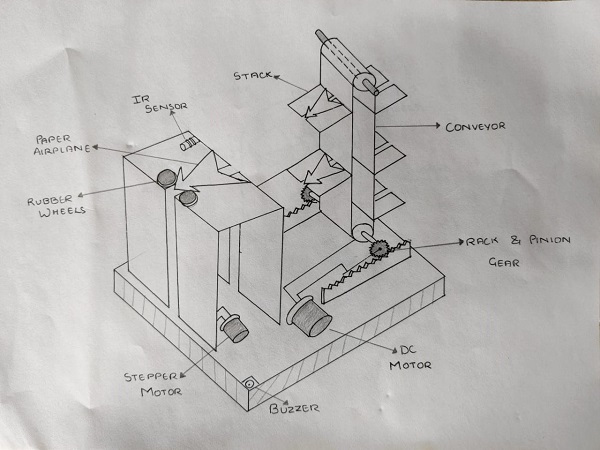 STACK
IR
SENSOR
PAPER
AIRPLANE
CONVEYOR
RUBBER
WHEELS
RACK & PINION
GEAR
DC
MOTOR
STEPPER
MOTOR
BUZZER